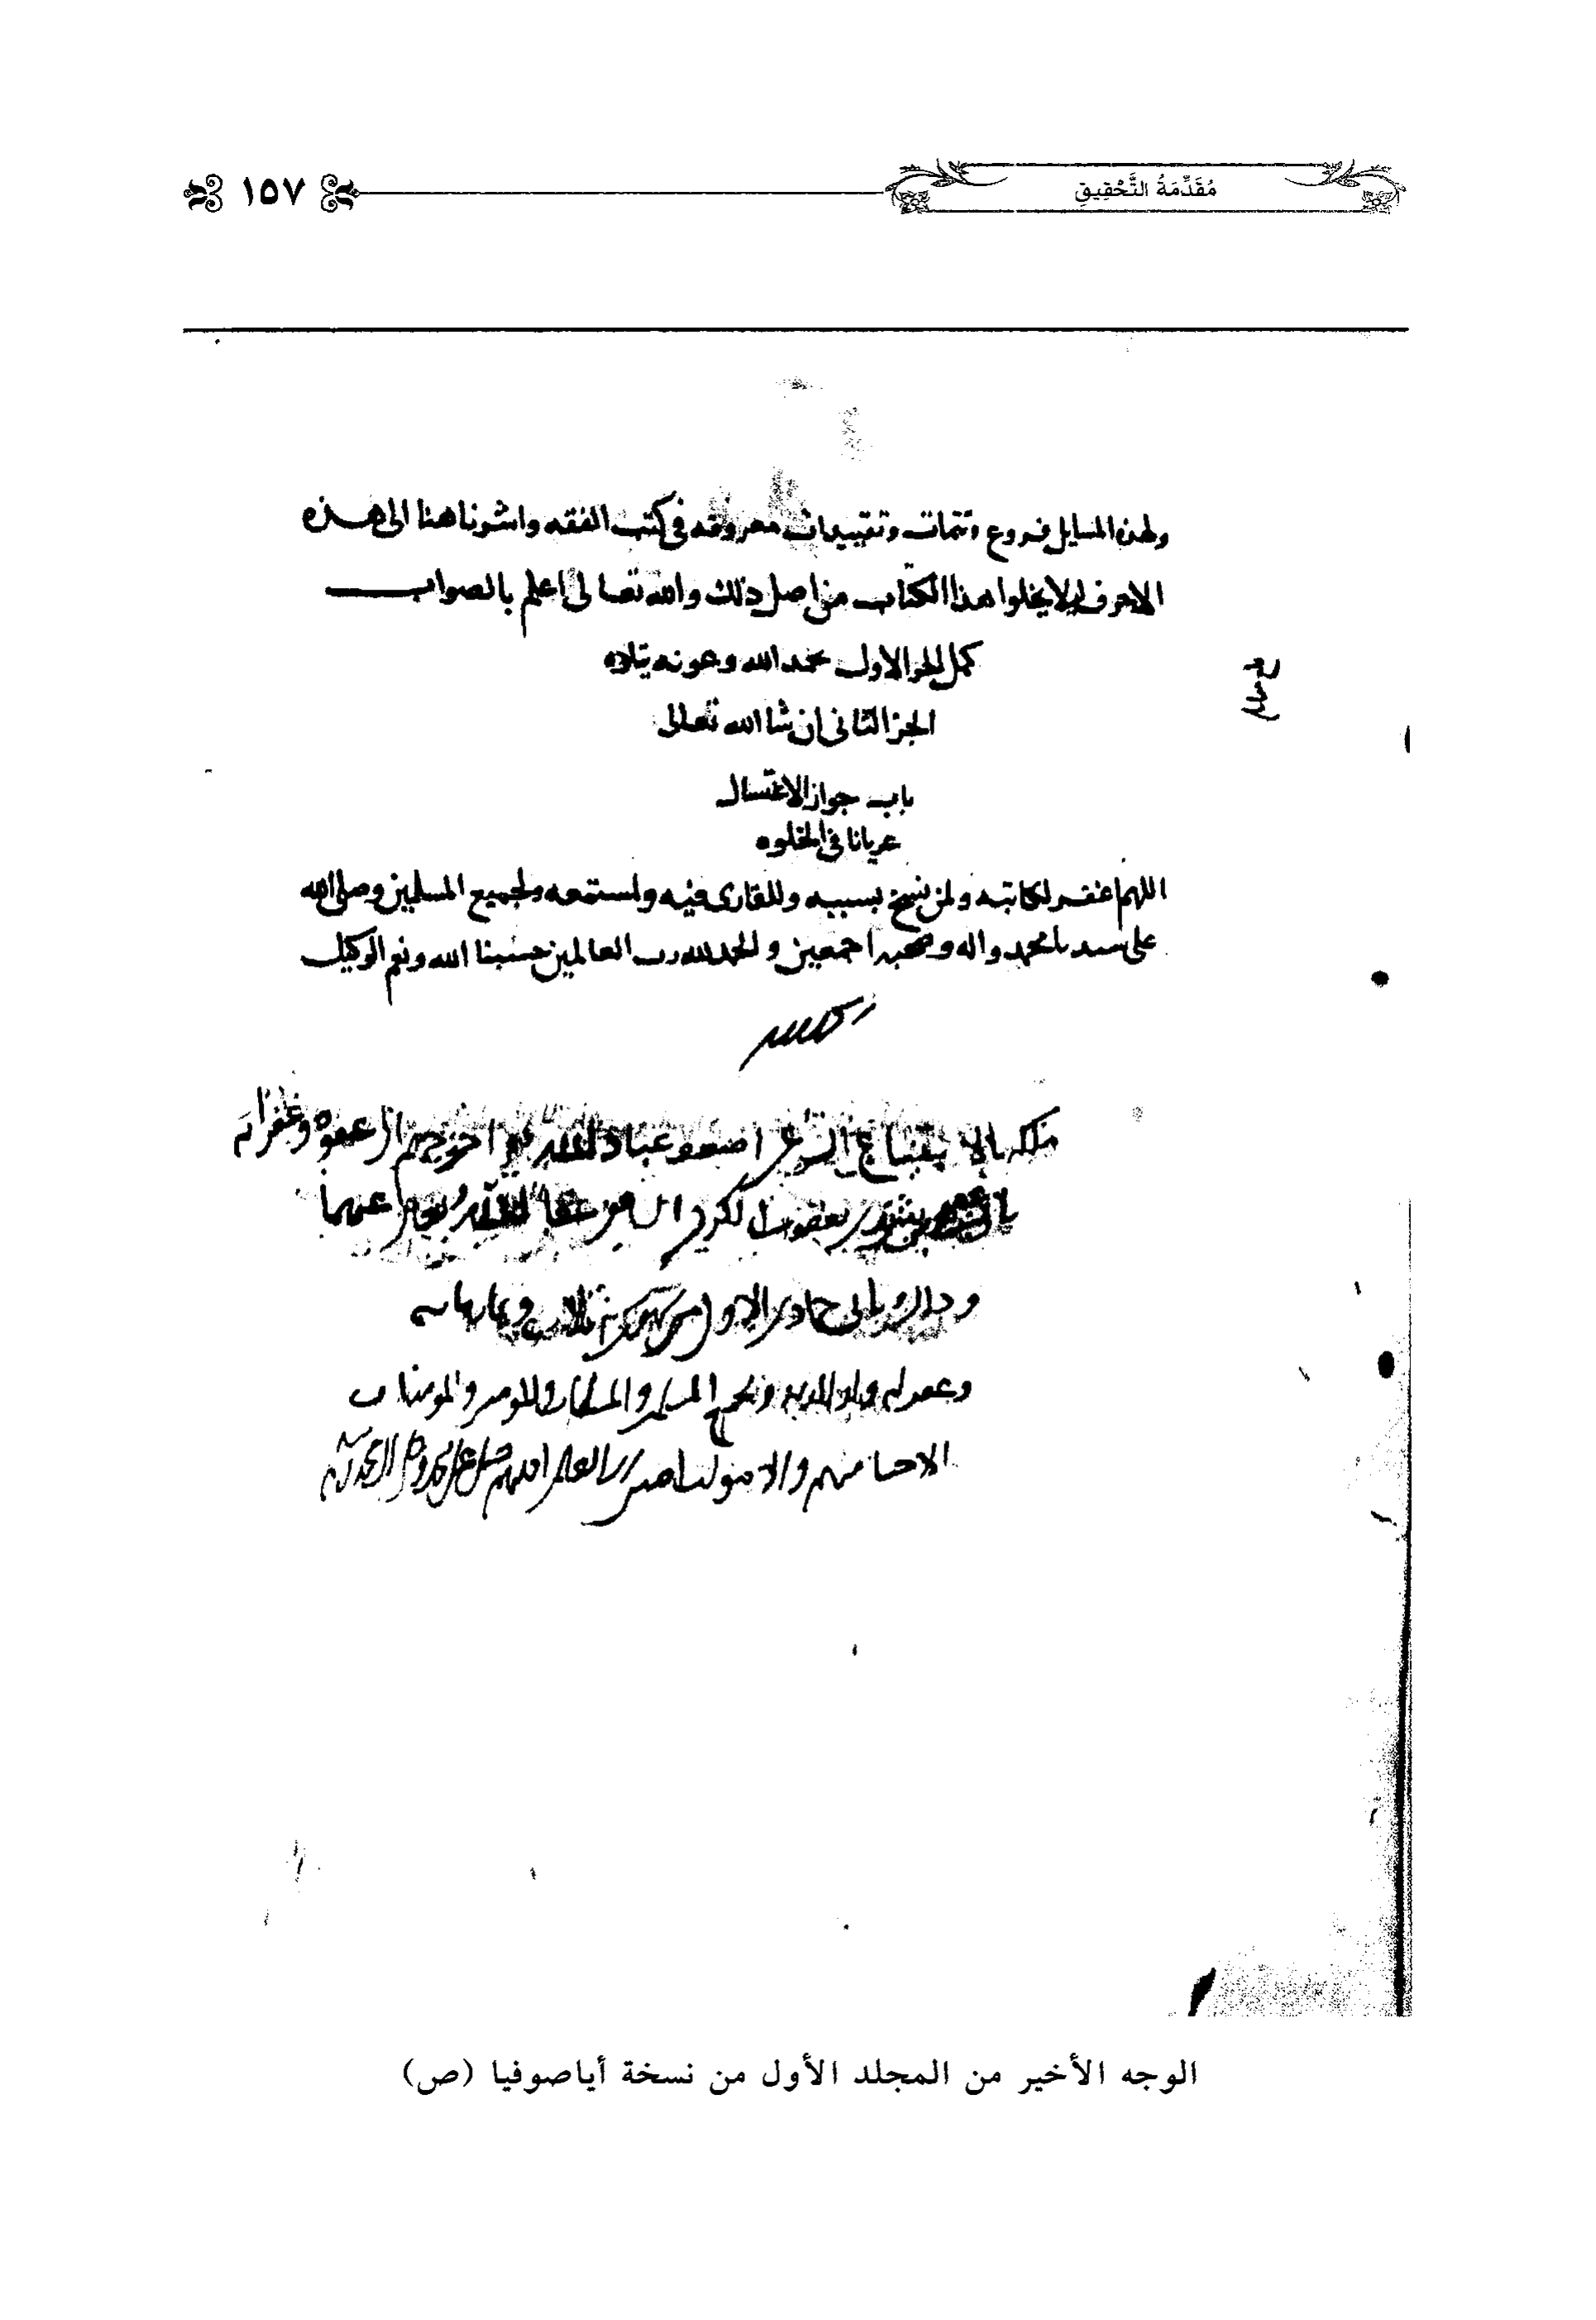 مُقَدِّمَةُ التَّحْقِيقِ
١٥٧
ولهذه المسايل فروع وتتمات وتقييدات معروفه في كتب الفقه واشرنا هنا الى هذه
الاحرف ليلا يخلوا هذا الكتاب من اصل ذلك والله تعالى اعلم بالصواب
كمل الجز الاول بحمد الله وعونه يتلوه
الجز الثاني ان شا الله تعالى
باب جواز الاغتسال
عريانا في الخلوه
اللهم اغفر لكاتبه ولمن نسخ بسببه وللقارى فيه ولمستمعه ولجميع المسلمين وصلى الله
على سيدنا محمد واله وصحبه اجمعين والحمد لله رب العالمين حسبنا الله ونعم الوكيل
ملكه بالابتياع الشرعي اضعف عباد الله واحوجهم الى عفوه وغفرانه
يعقوب الكردي الشافعي عفا الله عنهما
جمادى الاول
وغفر له ولوالديه ولجميع المسلمين والمسلمات والمومنين والمومنات
الاحيا منهم والاموات امين رب العالمين اللهم صل على محمد وعلى ال محمد
الوجه الأخير من المجلد الأول من نسخة أياصوفيا (ص)